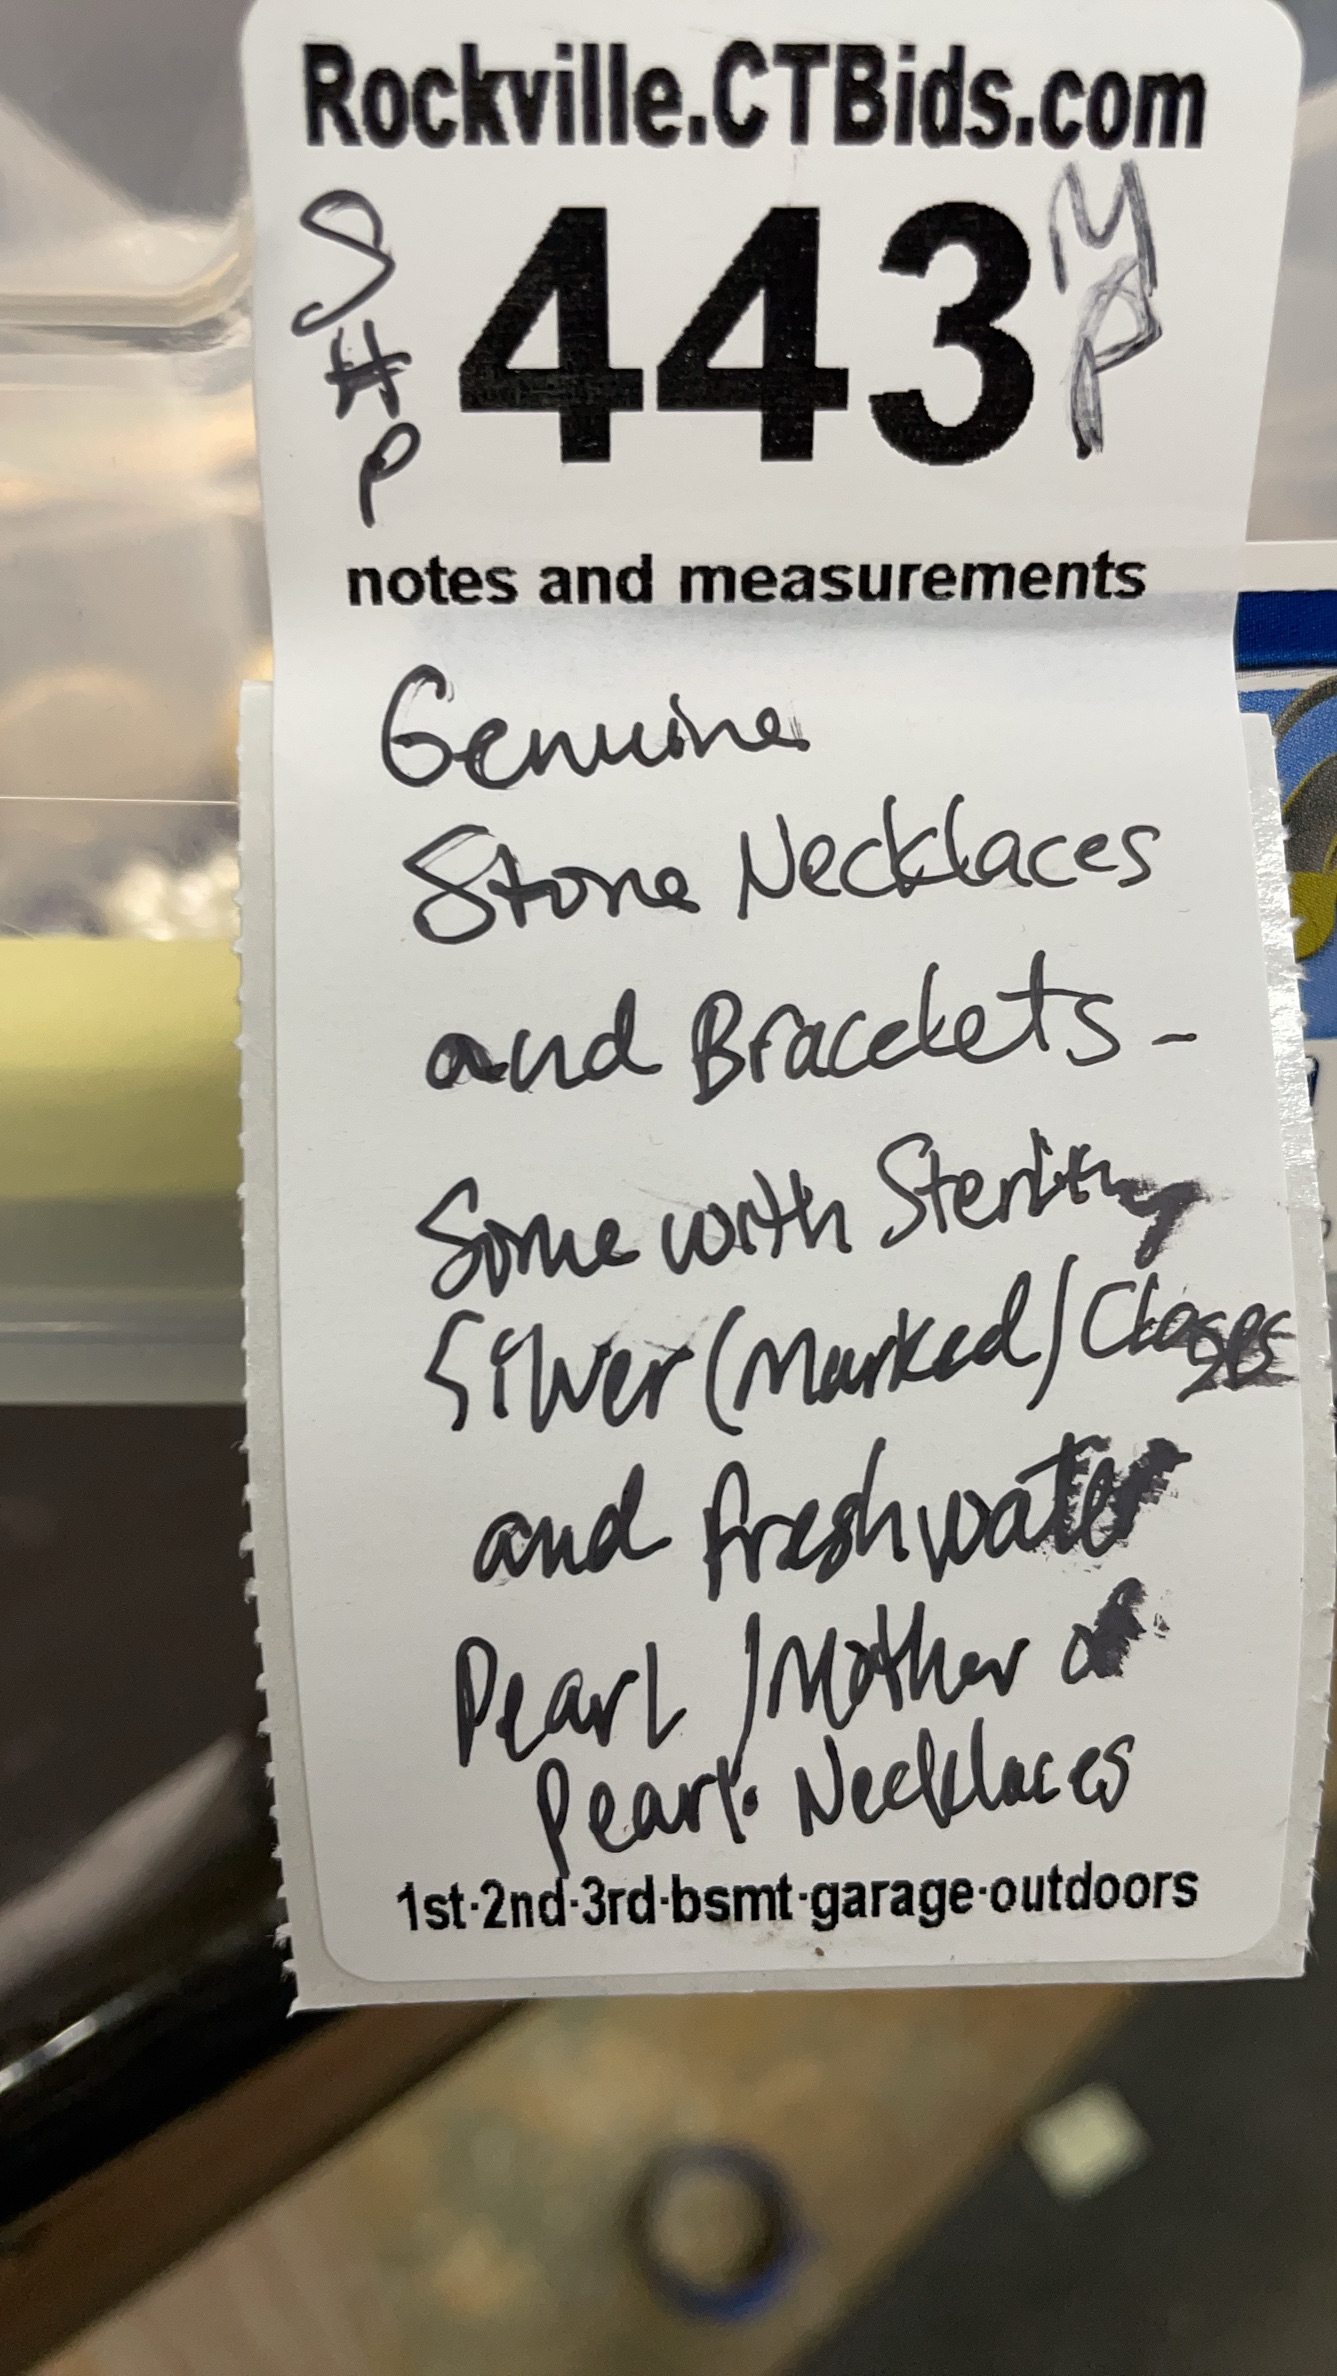 Rockville.CTBids.com
SHP 443 MP
notes and measurements
Genuine
Stone Necklaces
and Bracelets -
Some with Sterling
Silver (Marked) Clasps
and freshwater
Pearl / Mother of
Pearl. Necklaces
1st·2nd·3rd·bsmt·garage·outdoors